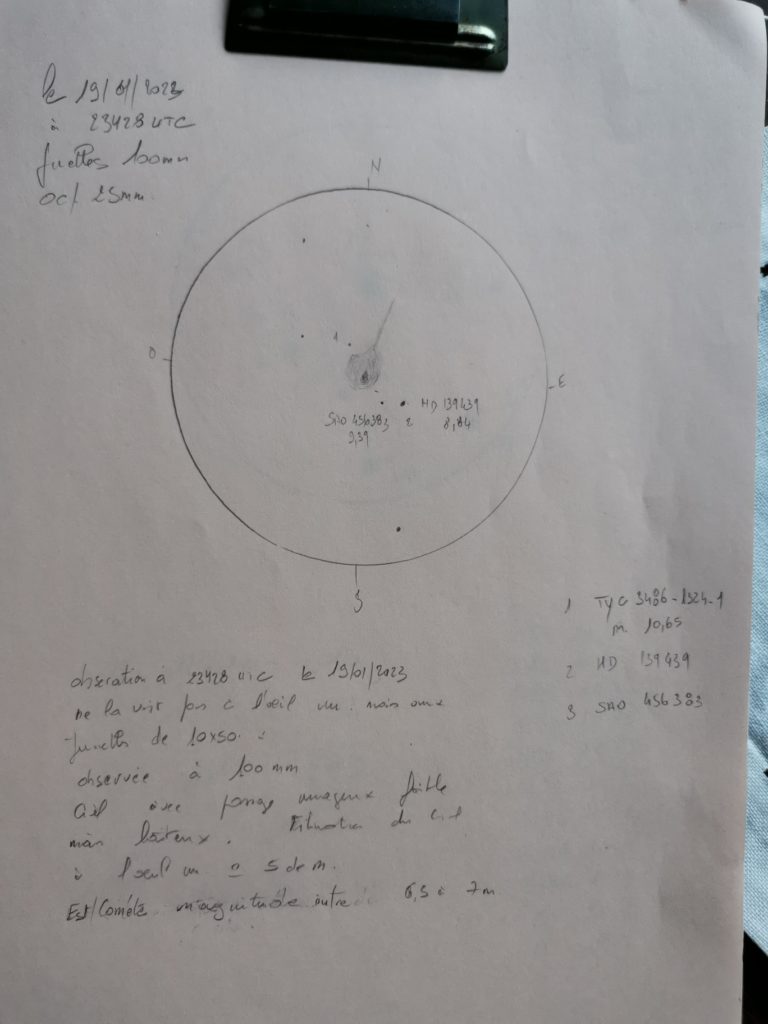 le 19/01/2023
à 23H28 UTC
Jumelles 100mm
oc/ 25mm.
N
O
1
E
HD 139439
SAO 456383 2 8,84
9,39
S
1 TYC 3486-1324-1
m 10,65
2 HD 139439
3 SAO 456383
observation à 23H28 UTC le 19/01/2023
ne la voit pas à l'oeil nu. mais aux
jumelles de 10x50.
observée à 100mm
Ciel avec passage nuageux faible
mais laiteux. du ciel
à l'oeil nu 5 de m.
Est/Comète magnitude entre 6,5 à 7m.